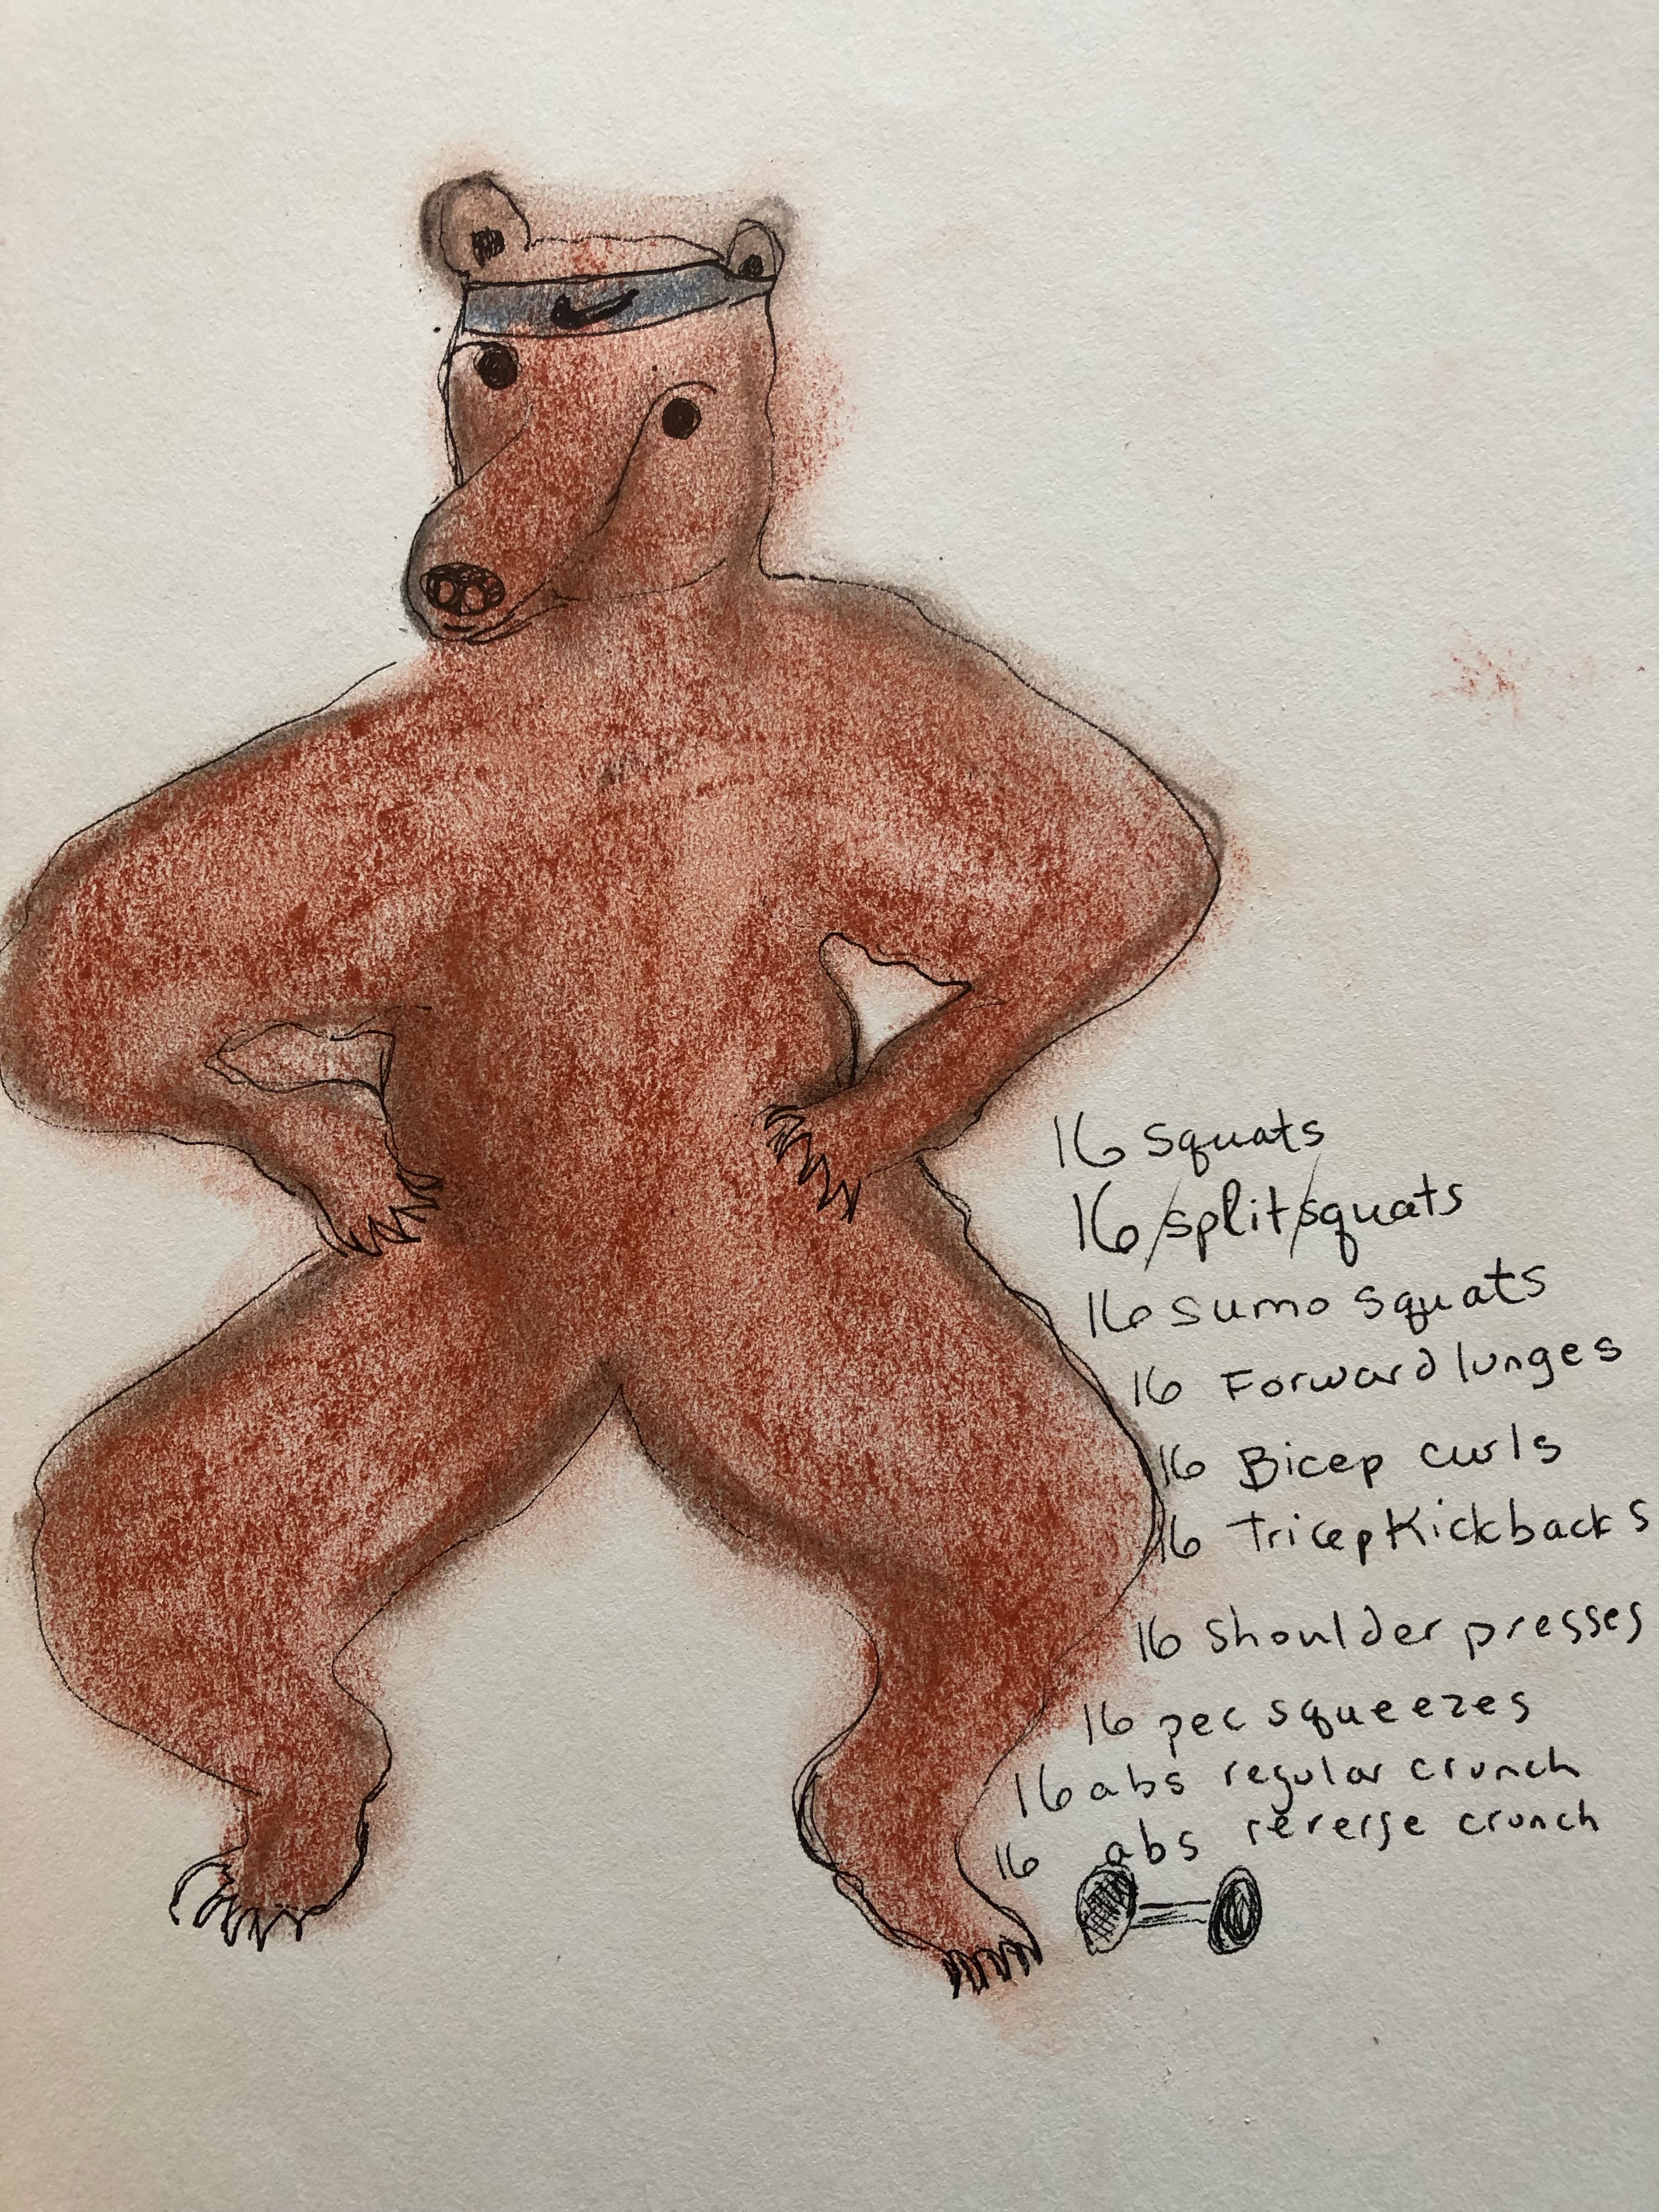 16 squats
16/split/squats
16 sumo squats
16 Forward lunges
16 Bicep curls
16 Tricep Kickbacks
16 shoulder presses
16 pec squeezes
16 abs regular crunch
16 abs reverse crunch